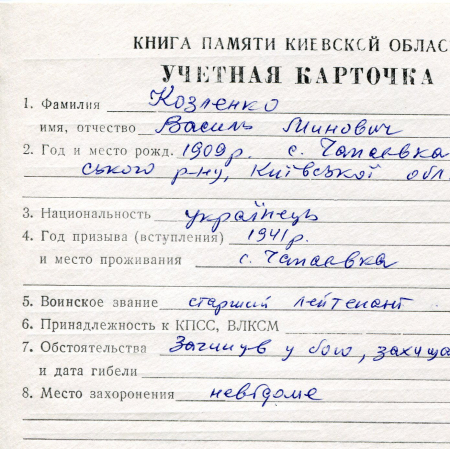 КНИГА ПАМЯТИ КИЕВСКОЙ ОБЛАС
УЧЕТНАЯ КАРТОЧКА
1. Фамилия Козленко
имя, отчество Василь Минович
2. Год и место рожд. 1909 р. с. Чапаєвка
ського р-ну, Київської обл
3. Национальность українець
4. Год призыва (вступления) 1941 р.
и место проживания с. Чапаєвка
5. Воинское звание старший лейтенант
6. Принадлежность к КПСС, ВЛКСМ
7. Обстоятельства Загинув у бою, захища
и дата гибели
8. Место захоронения невідоме